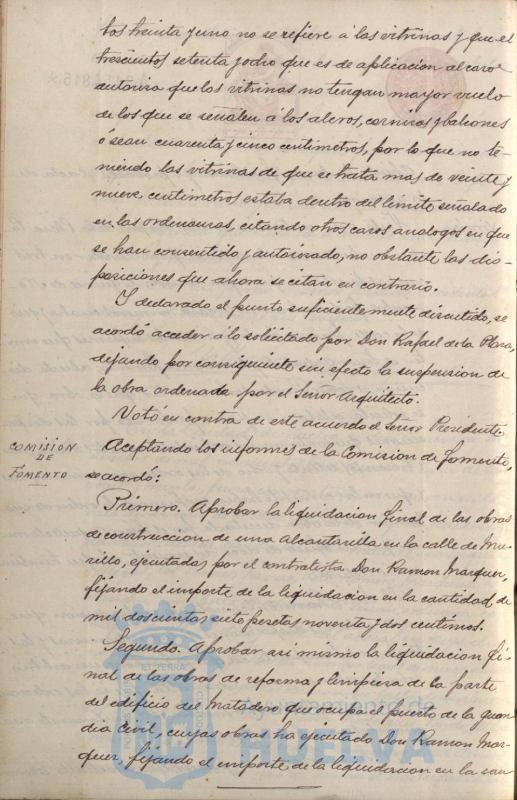 tos treinta y uno no se refiere á las vitrinas y que el
trescientos setenta y ocho que es de aplicacion al caso
autoriza que las vitrinas no tengan mayor vuelo
de los que se señalen á los aleros, cornisas y balcones
ó sean cuarenta y cinco centimetros, por lo que no te-
niendo las vitrinas de que se trata mas de veinte y
nueve centimetros estaba dentro del limite señalado
en las ordenanzas, citando otros casos analogos en que
se han consentido y autorizado, no obstante las dis-
posiciones que ahora se citan en contrario.
Y declarado el punto suficientemente discutido, se
acordó acceder á lo solicitado por Don Rafael de la
dejando por consiguiente sin efecto la suspension de
la obra ordenada por el Señor Arquitecto.
Votó en contra de este acuerdo el Señor Presidente
COMISION
DE
FOMENTO
Aceptando los informes de la Comision de Fomento,
se acordó:
Primero. Aprobar la liquidacion final de las obras
de construccion de una alcantarilla en la calle de Mu-
rillo, ejecutadas por el contratista Don Ramon Marquez,
fijando el importe de la liquidacion en la cantidad de
mil doscientas siete pesetas noventa y dos centimos.
Segundo. Aprobar asi mismo la liquidacion fi-
nal de las obras de reforma y limpieza de la parte
del edificio del Matadero que ocupa el puesto de la guar-
dia civil, cuyas obras ha ejecutado Don Ramon Mar-
quez, fijando el importe de la liquidacion en la can-
Ayuntamiento de
HUELVA